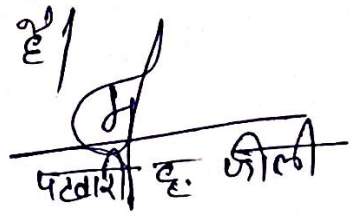 है।
पटवारी ह. जीली